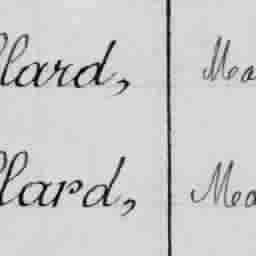 llard, Mea
llard, Mea